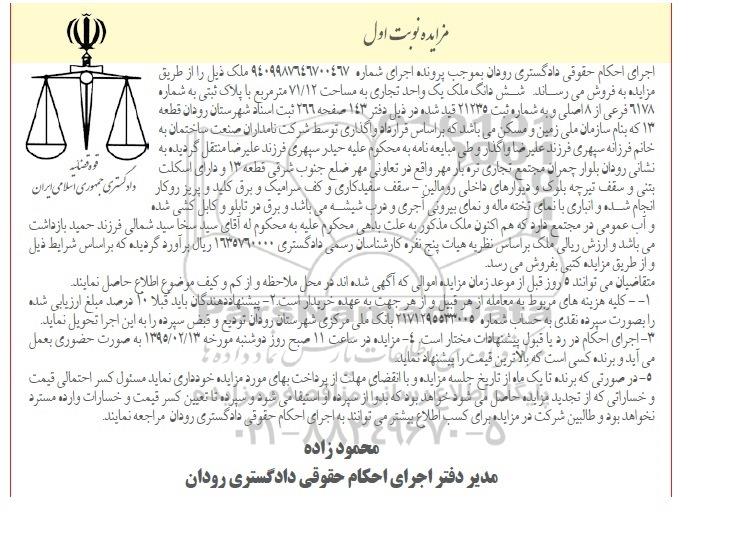 مزایده نوبت اول
قوه قضائیه
دادگستری جمهوری اسلامی ایران
اجرای احکام حقوقی دادگستری رودان بموجب پرونده اجرای شماره ۹۴۰۹۹۸۷۶۴۶۷۰۰۴۶۷ ملک ذیل را از طریق
مزایده به فروش می رساند. شش دانگ ملک یک واحد تجاری به مساحت ۷۱/۱۲ مترمربع با پلاک ثبتی به شماره
۶۱۷۸ فرعی از ۸اصلی و به شماره ثبت ۲۱۲۳۵ قید شده در ذیل دفتر ۱۴۳ صفحه ۲۶۶ ثبت اسناد شهرستان رودان قطعه
۱۳ که بنام سازمان ملی زمین و مسکن می باشد که براساس قرارداد واگذاری توسط شرکت نامداران صنعت ساختمان به
خانم فرزانه سپهری فرزند علیرضا واگذار و طی مبایعه نامه به محکوم علیه حیدر سپهری فرزند علیرضا منتقل گردیده به
نشانی رودان بلوار چمران مجتمع تجاری تره بار مهر واقع در تعاونی مهر ضلع جنوب شرقی قطعه ۱۳ و دارای اسکلت
بتنی و سقف تیرچه بلوک و دیوارهای داخلی رومالین - سقف سفیدکاری و کف سرامیک و برق کلید و پریز روکار
انجام شده و انباری با نمای تخته ماله و نمای بیرونی آجری و درب شیشه می باشد و برق در تابلو و کابل کشی شده
و آب عمومی در مجتمع دارد که هم اکنون ملک مذکور به علت بدهی محکوم علیه به محکوم له آقای سید سخا سید شمالی فرزند حمید بازداشت
می باشد و ارزش ریالی ملک براساس نظریه هیات پنج نفره کارشناسان رسمی دادگستری ۱۶۳۵۷۶۰۰۰۰ ریال برآورد گردیده که براساس شرایط ذیل
و از طریق مزایده کتبی بفروش می رسد.
متقاضیان می توانند ۵ روز قبل از موعد زمان مزایده اموالی که آگهی شده اند در محل ملاحظه و از کم و کیف موضوع اطلاع حاصل نمایند.
۱- - کلیه هزینه های مربوط به معامله از هر قبیل و از هر جهت به عهده خریدار است ۲- پیشنهاددهندگان باید قبلا ۱۰ درصد مبلغ ارزیابی شده
را بصورت سپرده نقدی به حساب شماره ۲۱۷۱۲۹۵۵۳۳۰۰۵ بانک ملی مرکزی شهرستان رودان تودیع و قبض سپرده را به این اجرا تحویل نماید.
۳- اجرای احکام در رد یا قبول پیشنهادات مختار است. ۴- مزایده در ساعت ۱۱ صبح روز دوشنبه مورخه ۱۳۹۵/۰۲/۱۳ به صورت حضوری بعمل
می آید و برنده کسی است که بالاترین قیمت را پیشنهاد نماید.
۵- در صورتی که برنده تا یک ماه از تاریخ جلسه مزایده و با انقضای مهلت از پرداخت بهای مورد مزایده خودداری نماید مسئول کسر احتمالی قیمت
و خساراتی که از تجدید مزایده حاصل می شود خواهد بود که بدوا از سپرده او استیفا می شود و سپرده تا تعیین کسر قیمت و خسارات وارده مسترد
نخواهد بود و طالبین شرکت در مزایده برای کسب اطلاع بیشتر می توانند به اجرای احکام حقوقی دادگستری رودان مراجعه نمایند.
۰۲۱-۸۸۳۴۹۶۷۰-۵
محمود زاده
مدیر دفتر اجرای احکام حقوقی دادگستری رودان